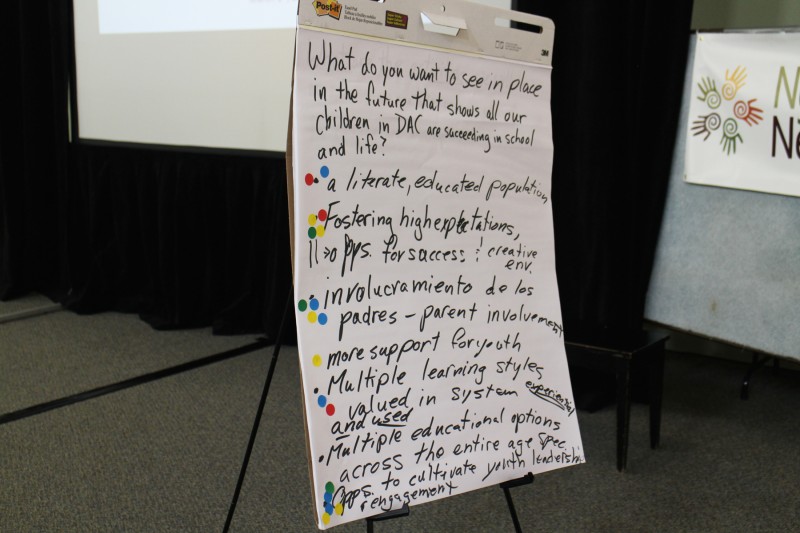 Post-it
3M
What do you want to see in place
in the future that shows all our
children in DAC are succeeding in school
and life?
• a literate, educated population
• Fostering high expectations,
opps. for success & creative
env.
• involucramiento de los
padres - parent involvement
more support for youth
• Multiple learning styles
valued in system experiential
and used
• Multiple educational options
across the entire age spec
• Opps. to cultivate youth leadership
engagement
N
Ne